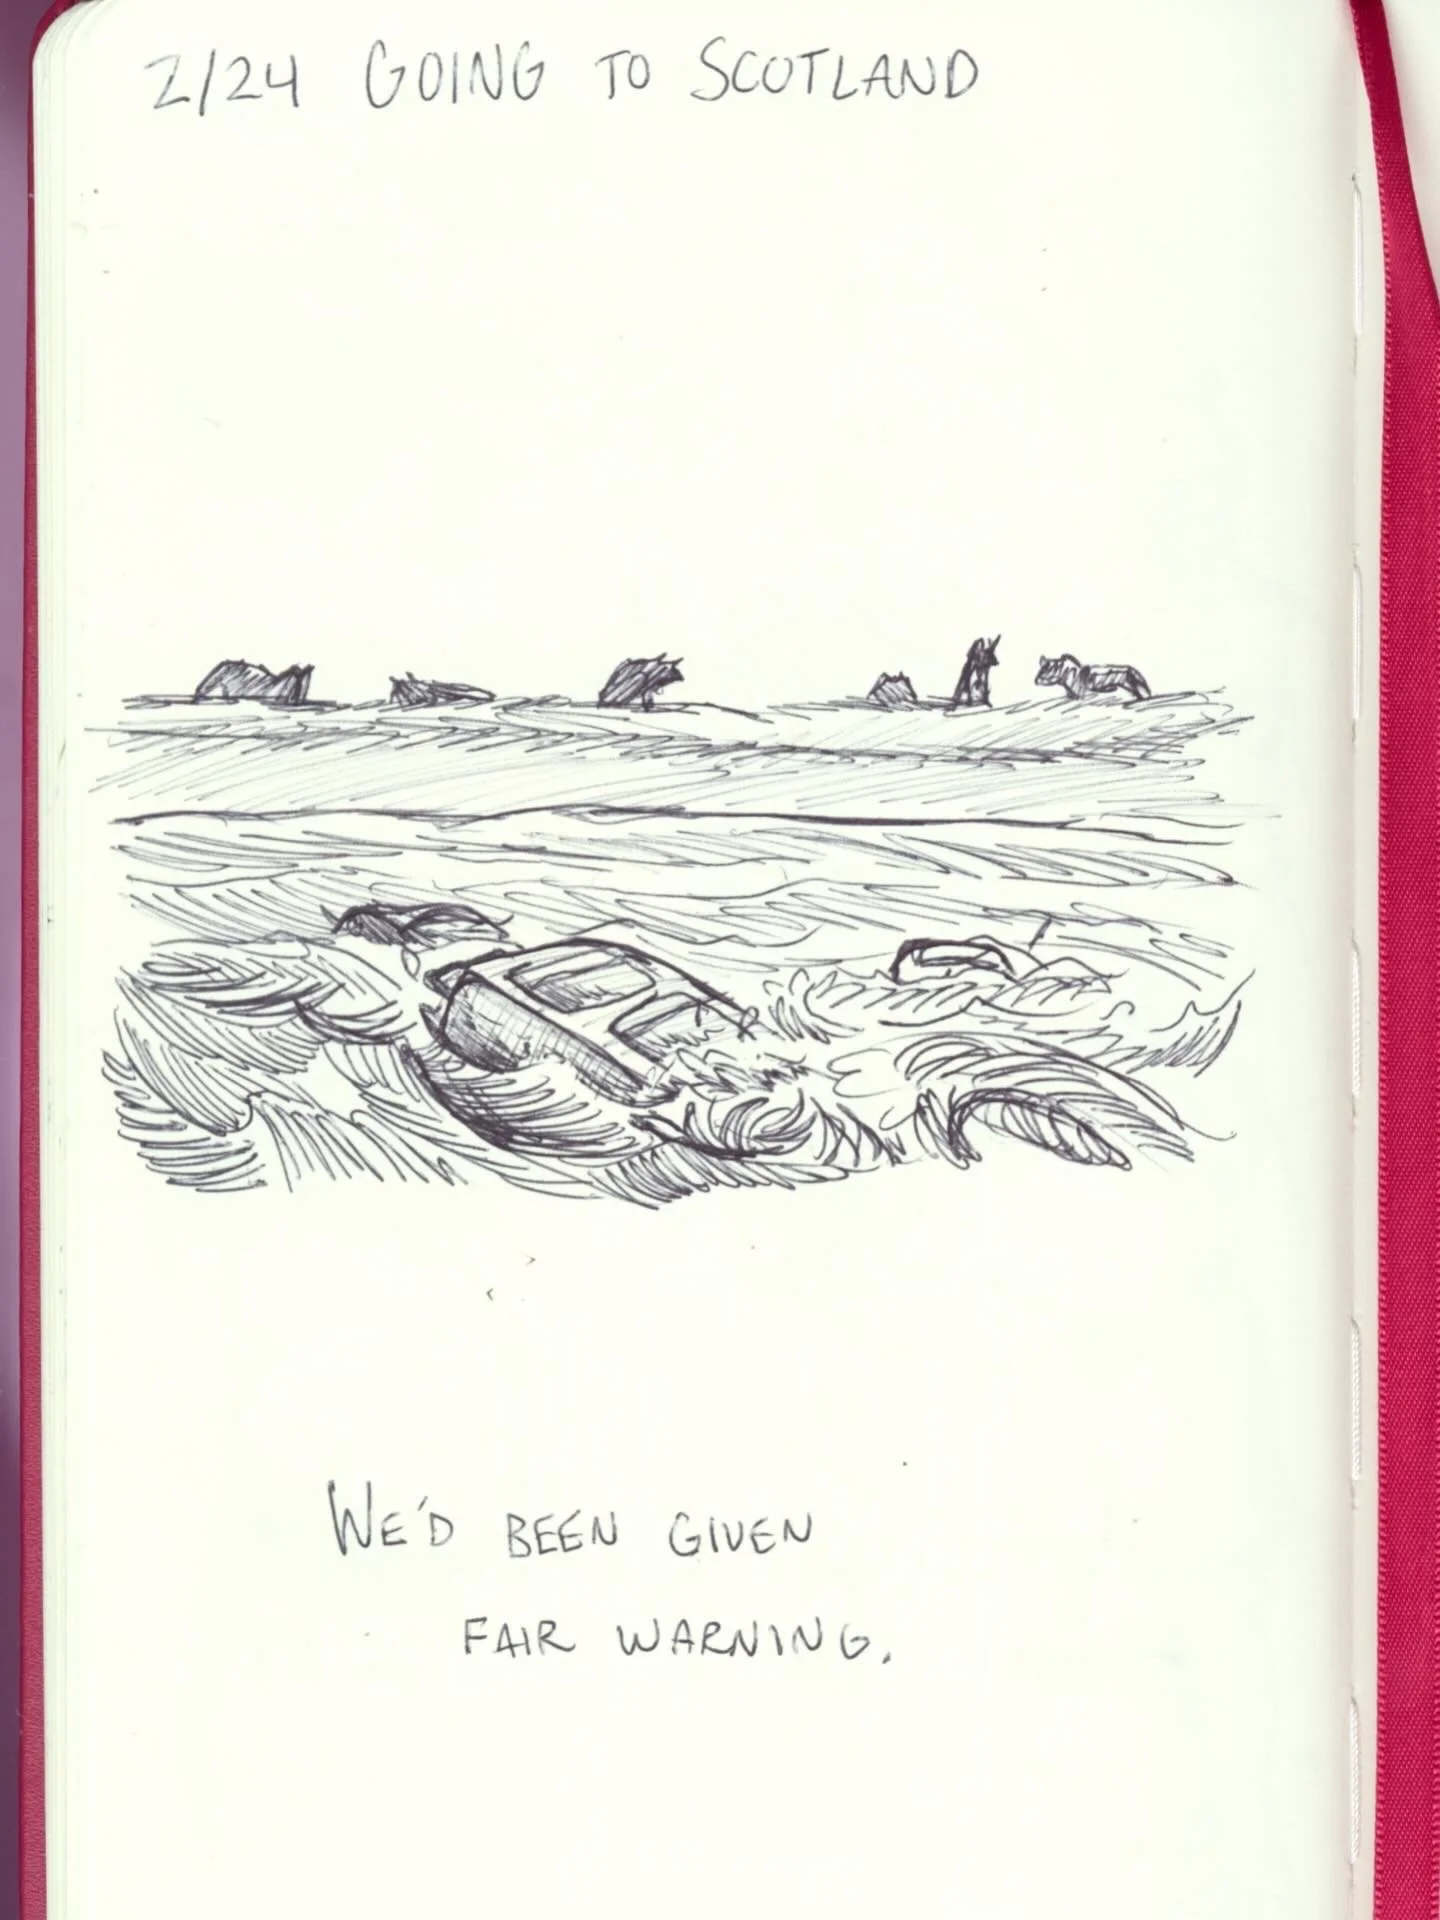 2/24 GOING TO SCOTLAND
WE'D BEEN GIVEN
FAIR WARNING.